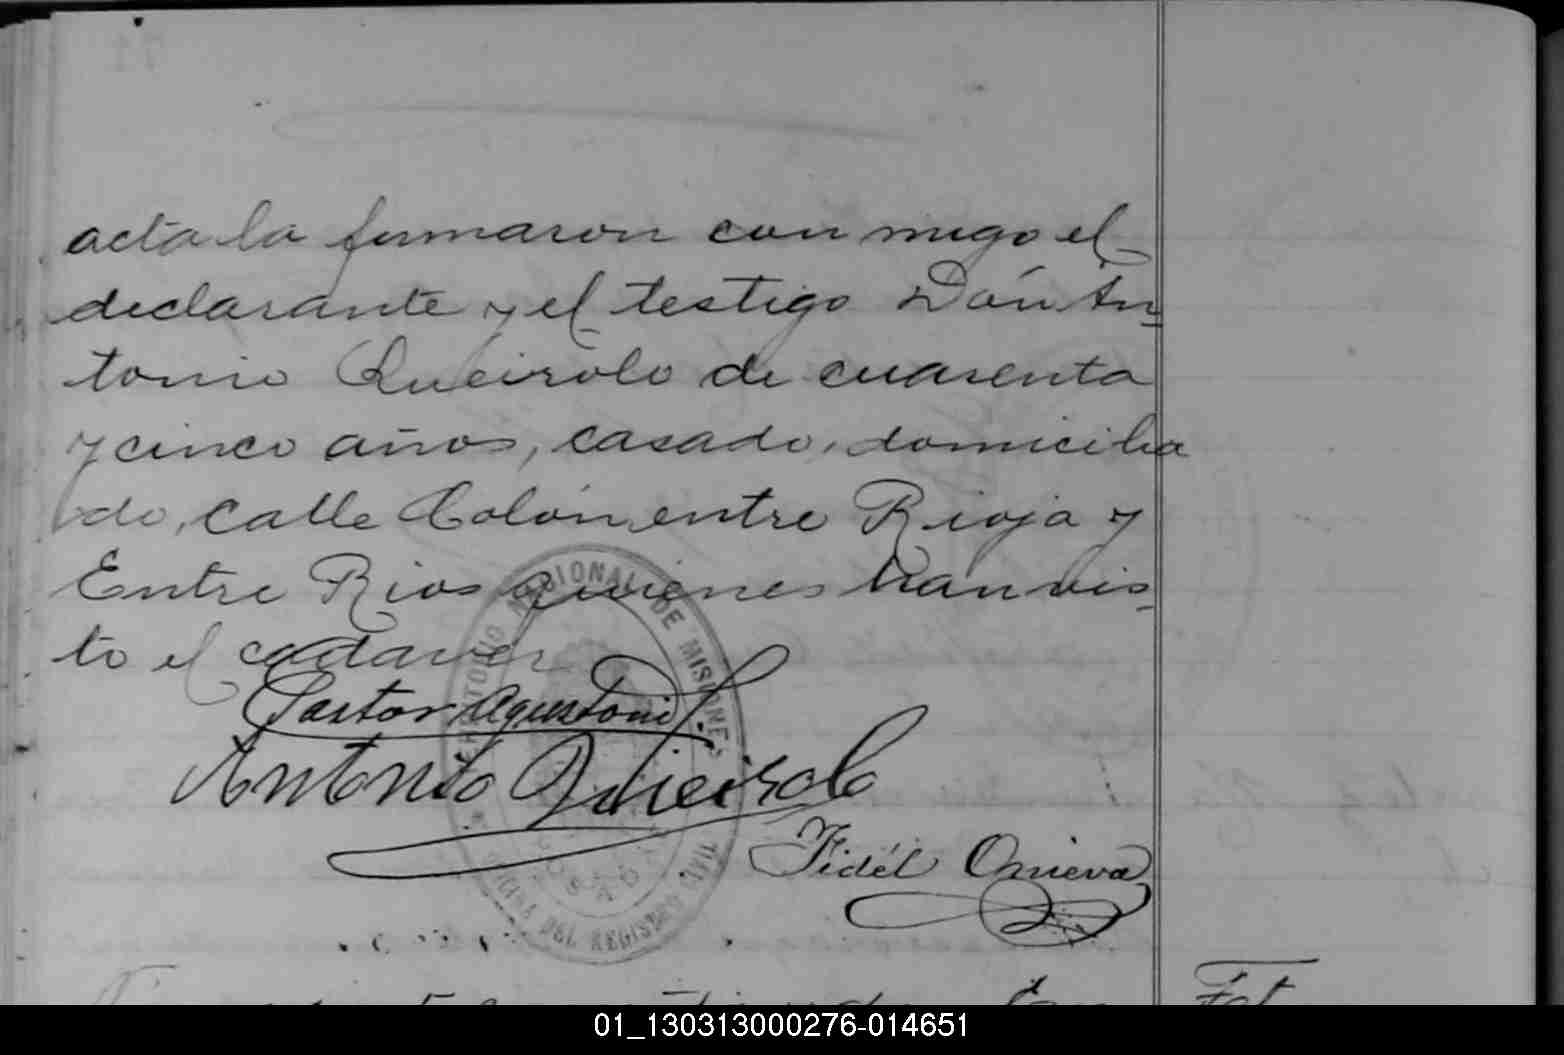 acta la firmaron con migo el
declarante y el testigo Don An-
tonio Queirolo de cuarenta
y cinco años, casado, domicilia
do, calle Colón entre Rioja y
Entre Rios quienes han vis-
to el cadaver
Pastor Agustoni
Antonio Queirolo
Fidél Onieva
TERRITORIO NACIONAL DE MISIONES
OFICINA DEL REGISTRO CIVIL
POSADAS
01_130313000276-014651